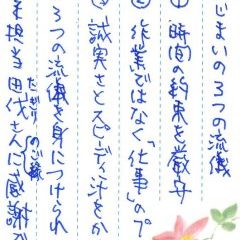 じまいの3つの流儀
① 時間の約束を厳守
② 作業ではなく「仕事」のプ
③ 誠実さとスピーディ汁をか
3つの流儀を身につけられ
業担当 田代さんに感謝が